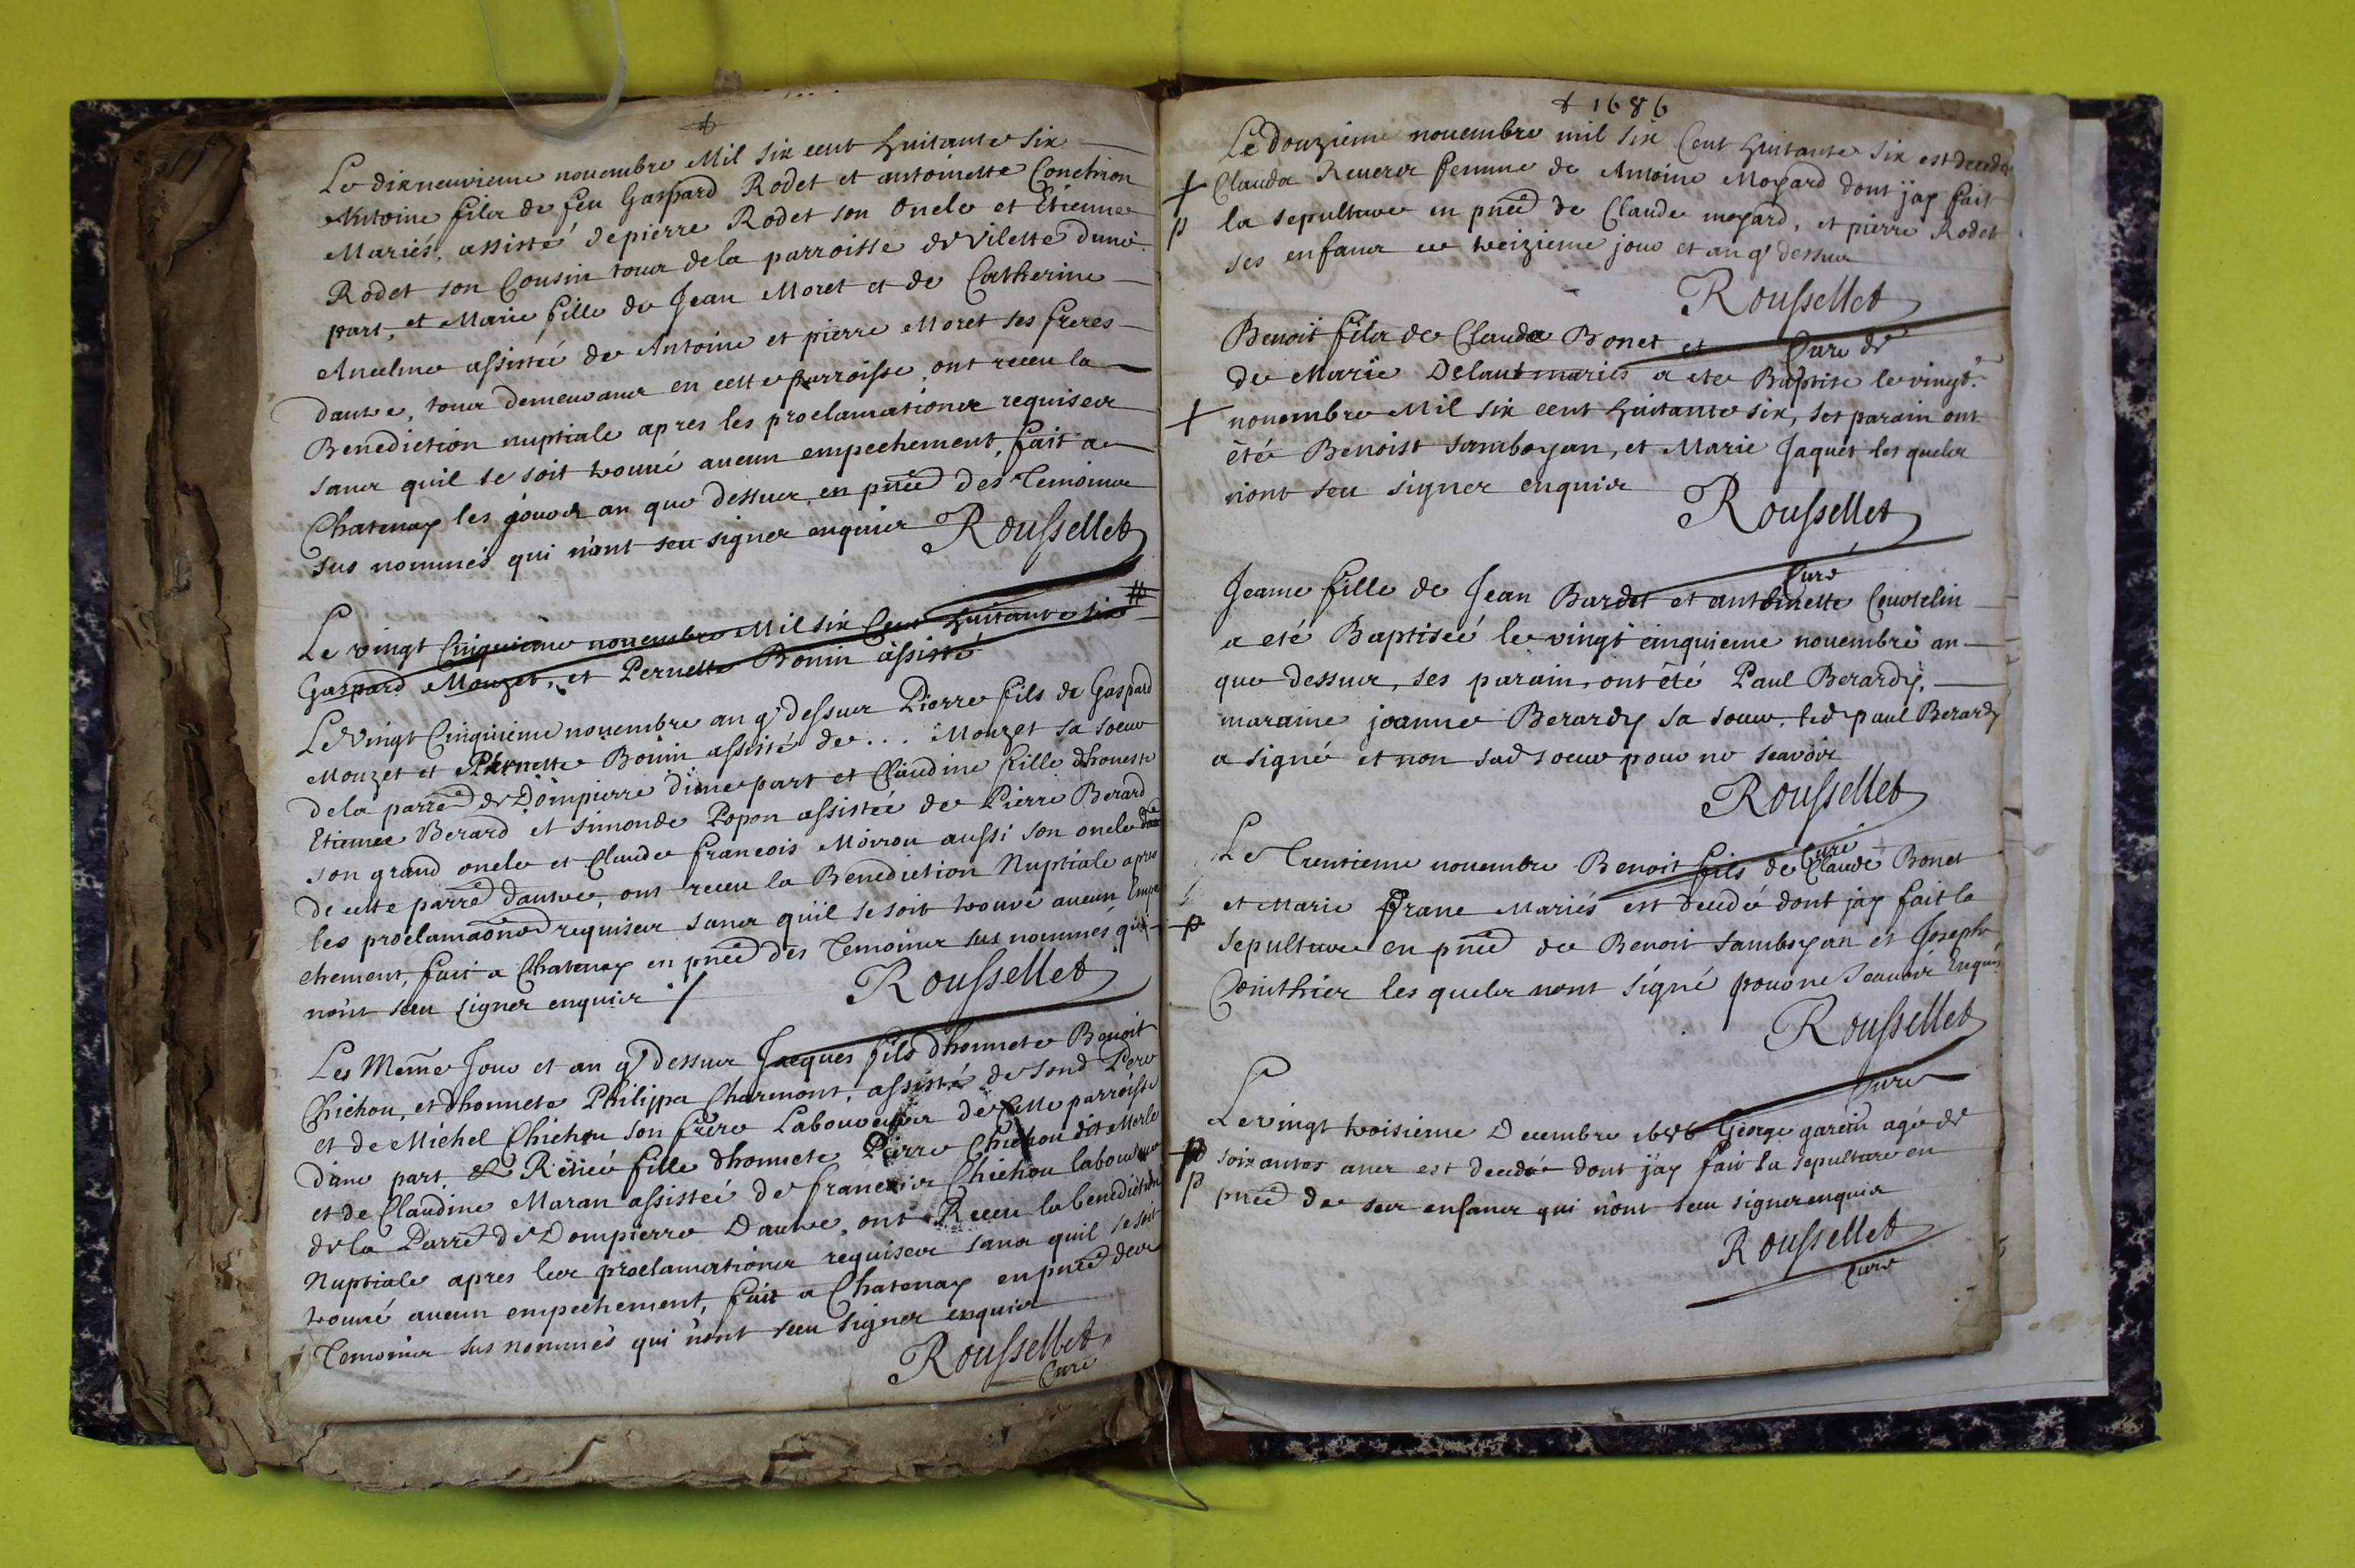 Le dixneuvieme novembre Mil six cent huitante six
Antoine fils de feu Gaspard Rodet et antoinette Conchion
Mariés, assisté de pierre Rodet son Oncle et Etienne
Rodet son Cousin tous de la parroisse de Vilette d'une
part, et Marie fille de Jean Moret et de Catherine
Ancelme assisteé de Antoine et pierre Moret ses freres
dautre, tous demeurans en cette parroisse, ont receu la
Benediction nuptiale apres les proclamations requises
sans quil se soit trouvé aucun empechement, fait a
Chatenay les jour et an que dessus, en pnce des Temoins
sus nommés qui n'ont sceu signer enquis Roussellet
Le vingt Cinquieme novembre Mil six Cent huitante six #
Gaspard Mouzet, et Pernette Bonin assisté
Le Vingt Cinquieme novembre an q. dessus Pierre fils de Gaspard
Mouzet et Pernette Bonin assisté de . . . Mouzet sa soeur
de la parre de Dompierre d'une part et Claudine fille d'honeste
Etienne Berard et Simonde Popon assistée de Pierre Berard
son grand oncle et Claude francois Moirou aussi son oncle
de cette parre dautre, ont receu la Benediction Nuptiale apres
les proclamaons requises sans qu'il se soit trouvé aucun Empe
chement, fait a Chatenay en pnce des Temoins sus nommés qui
n'ont sceu signer enquis Roussellet
Les Même Jour et an q. dessus Jacques fils d'honnete Benoit
Chichou, et d'honnete Philippa Charmont, assisté de sond Pere
et de Michel Chichou son frere Laboureurs de cette parroisse
d'une part, et Renée fille d'honnete Pierre Chichou dit Merle
et de Claudine Maran assisteé de francois Chichou laboureur
de la Parre de Dompierre Dautre, ont Receu la benediction
Nuptiale apres les proclamations requises sans quil se soit
trouvé aucun empechement, fait a Chatenay en pnce des
Temoins sus nommés qui n'ont sceu signer enquis
Roussellet
Curé
1686
Le douzieme novembre mil six Cent huitante six est decedée
Clauda Reverer femme de Antoine Moyard dont j'ay fait
la sepulture en pnce de Claude moyard, et pierre Rodet
ses enfans ce treizieme jour et an q. dessus
Roussellet
Curé
Benoit fils de Claude Bonet et
de Marie Delaut mariés a ete Baptise le vingt
novembre Mil six cent huitante six, ses parain ont
été Benoist Samboyan, et Marie Jaquet les quels
n'ont sceu signer enquis Roussellet
Curé
Jeanne fille de Jean Bardet et antoinette Courtelin
a eté Baptiseé le vingt cinquieme novembre an
que dessus, ses parain, ont été Paul Berardy,
maraine jeanne Berardy sa soeur, led paul Berardy
a signé et non sad soeur pour ne scavoir
Roussellet
Curé
Le Trentieme novembre Benoit fils de Claude Bonet
et Marie Franc Mariés est decedé dont jay fait la
sepulture en pnce de Benoit Samboyan et Joseph
Cointhier les quels n'ont signé pour ne Scavoir Enquis
Roussellet
Curé
Le vingt troisieme Decembre 1686 George garein agé de
soixantes ans est decedé dont j'ay fait la sepulture en
pnce de ses enfans qui n'ont sceu signer enquis
Roussellet
Curé